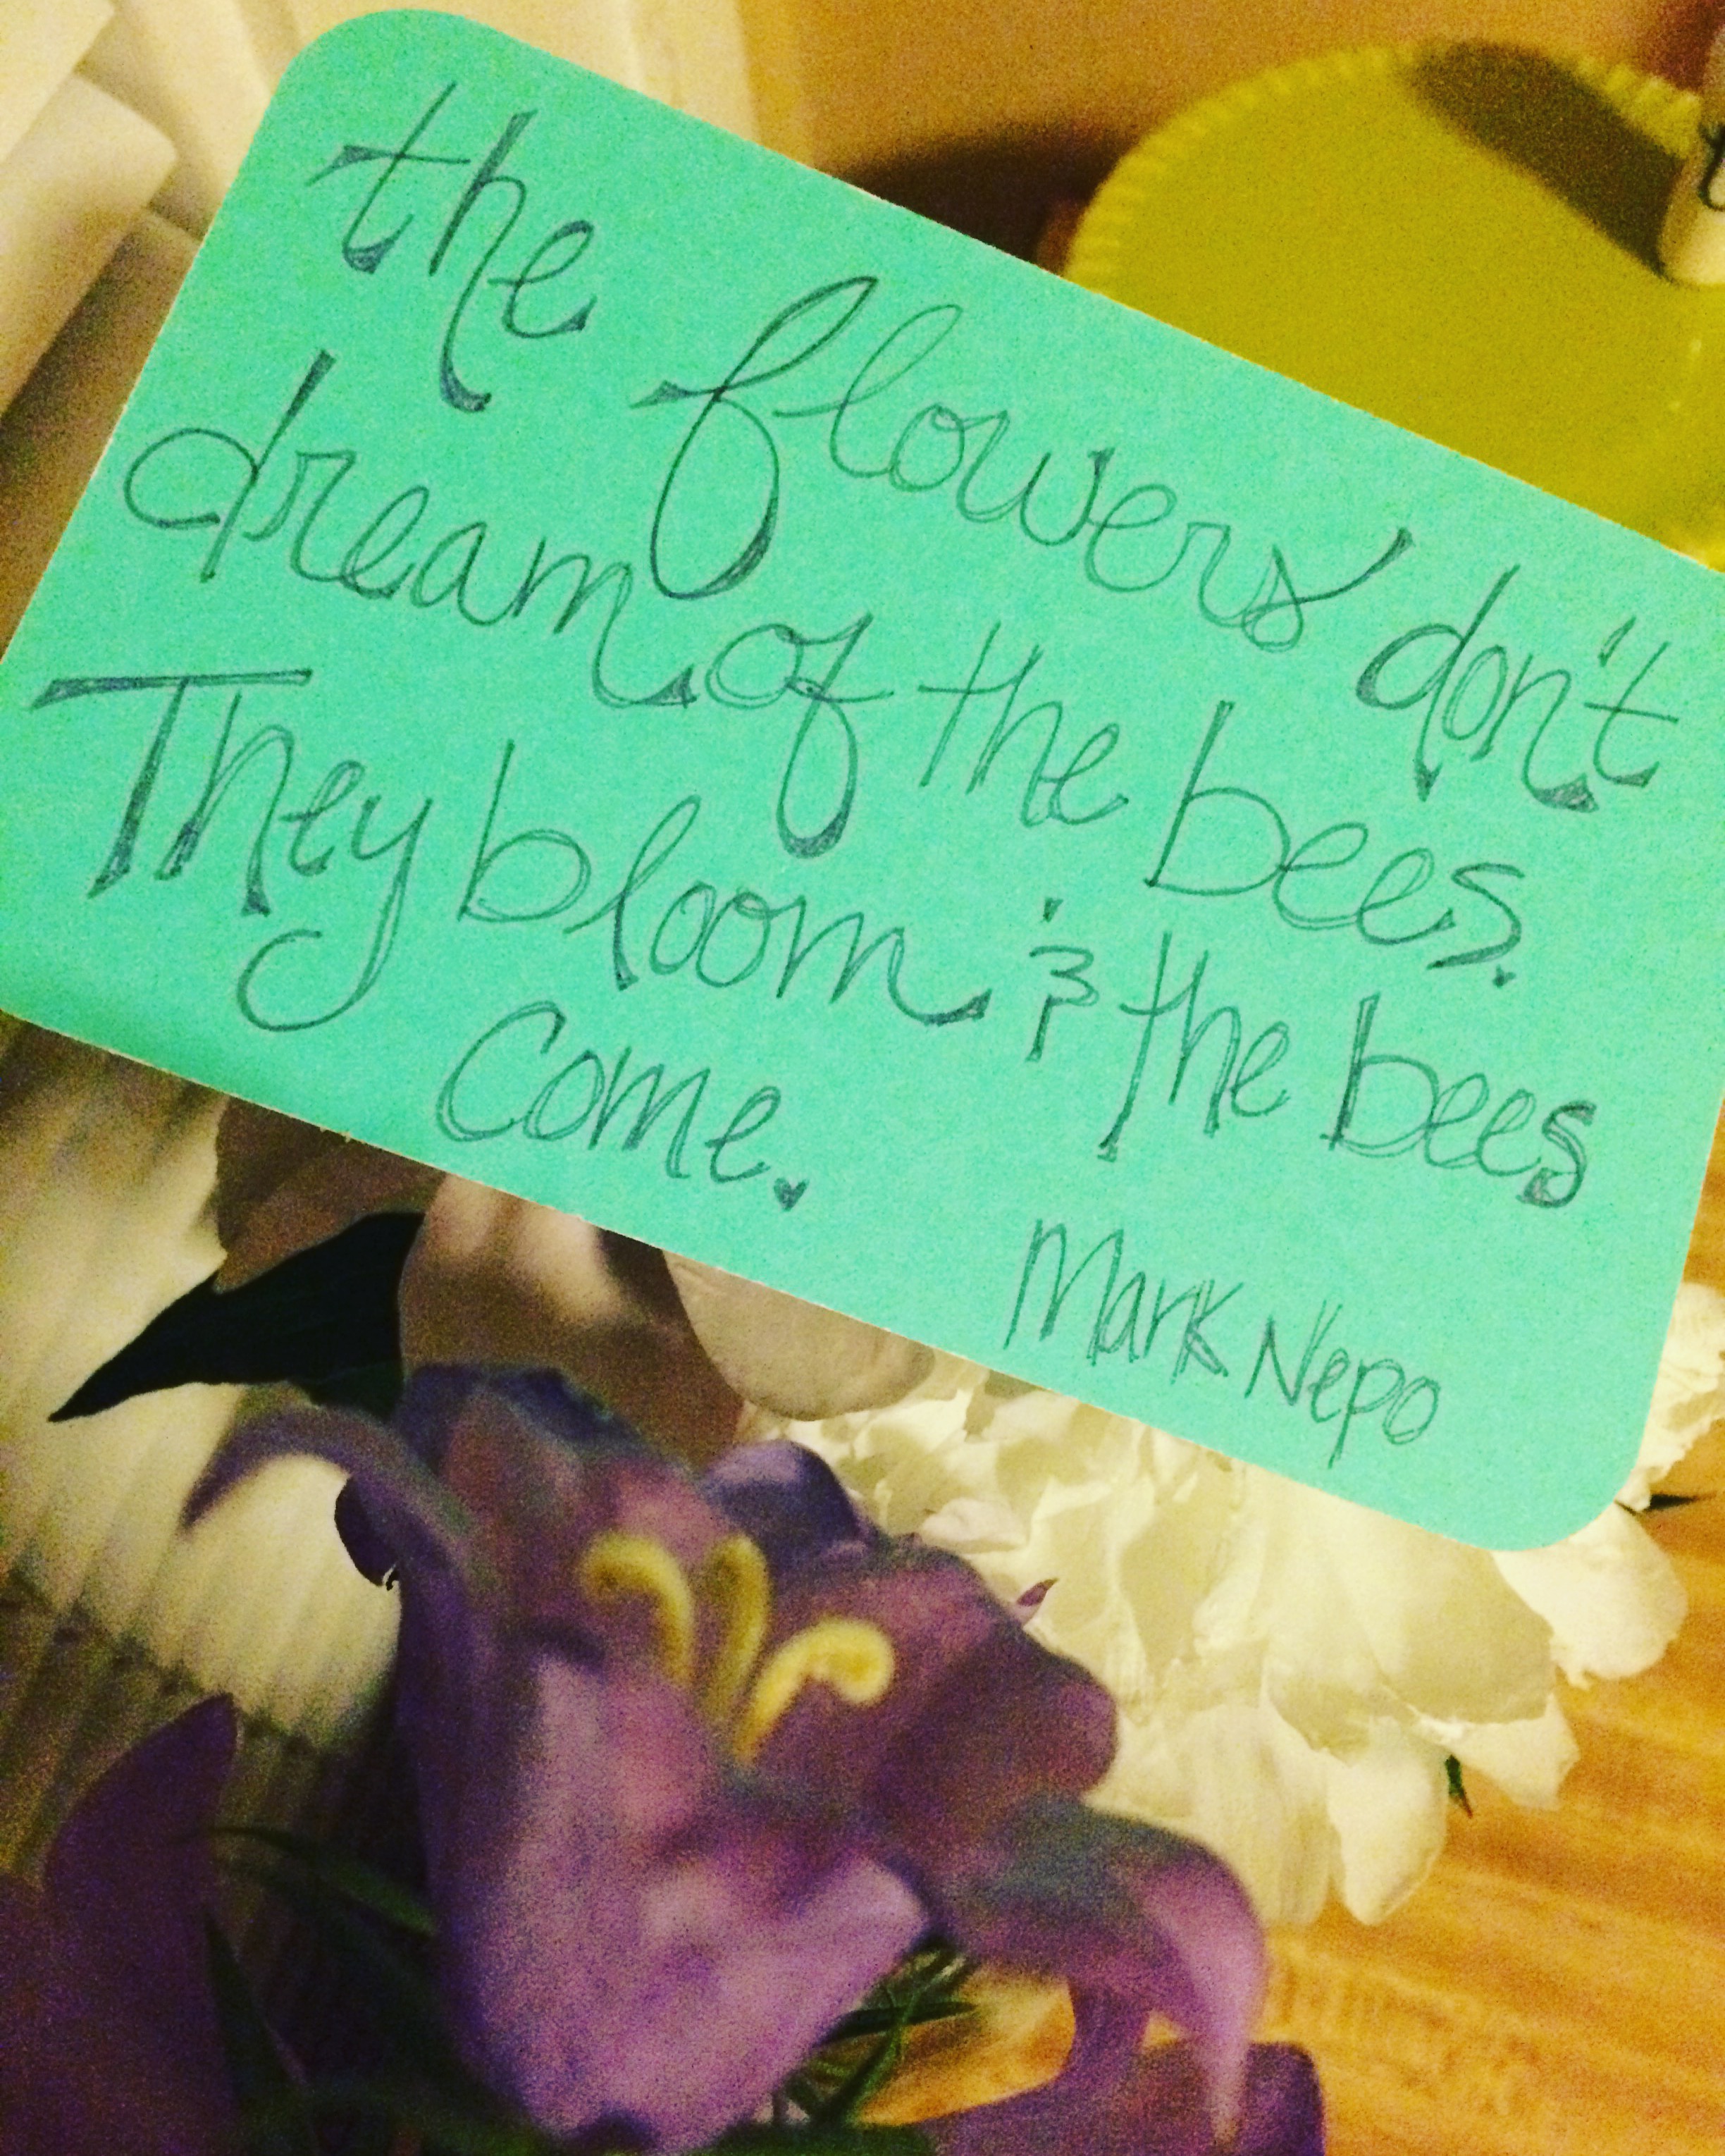 the flowers don't
dream of the bees.
They bloom & the bees
come.
Mark Nepo